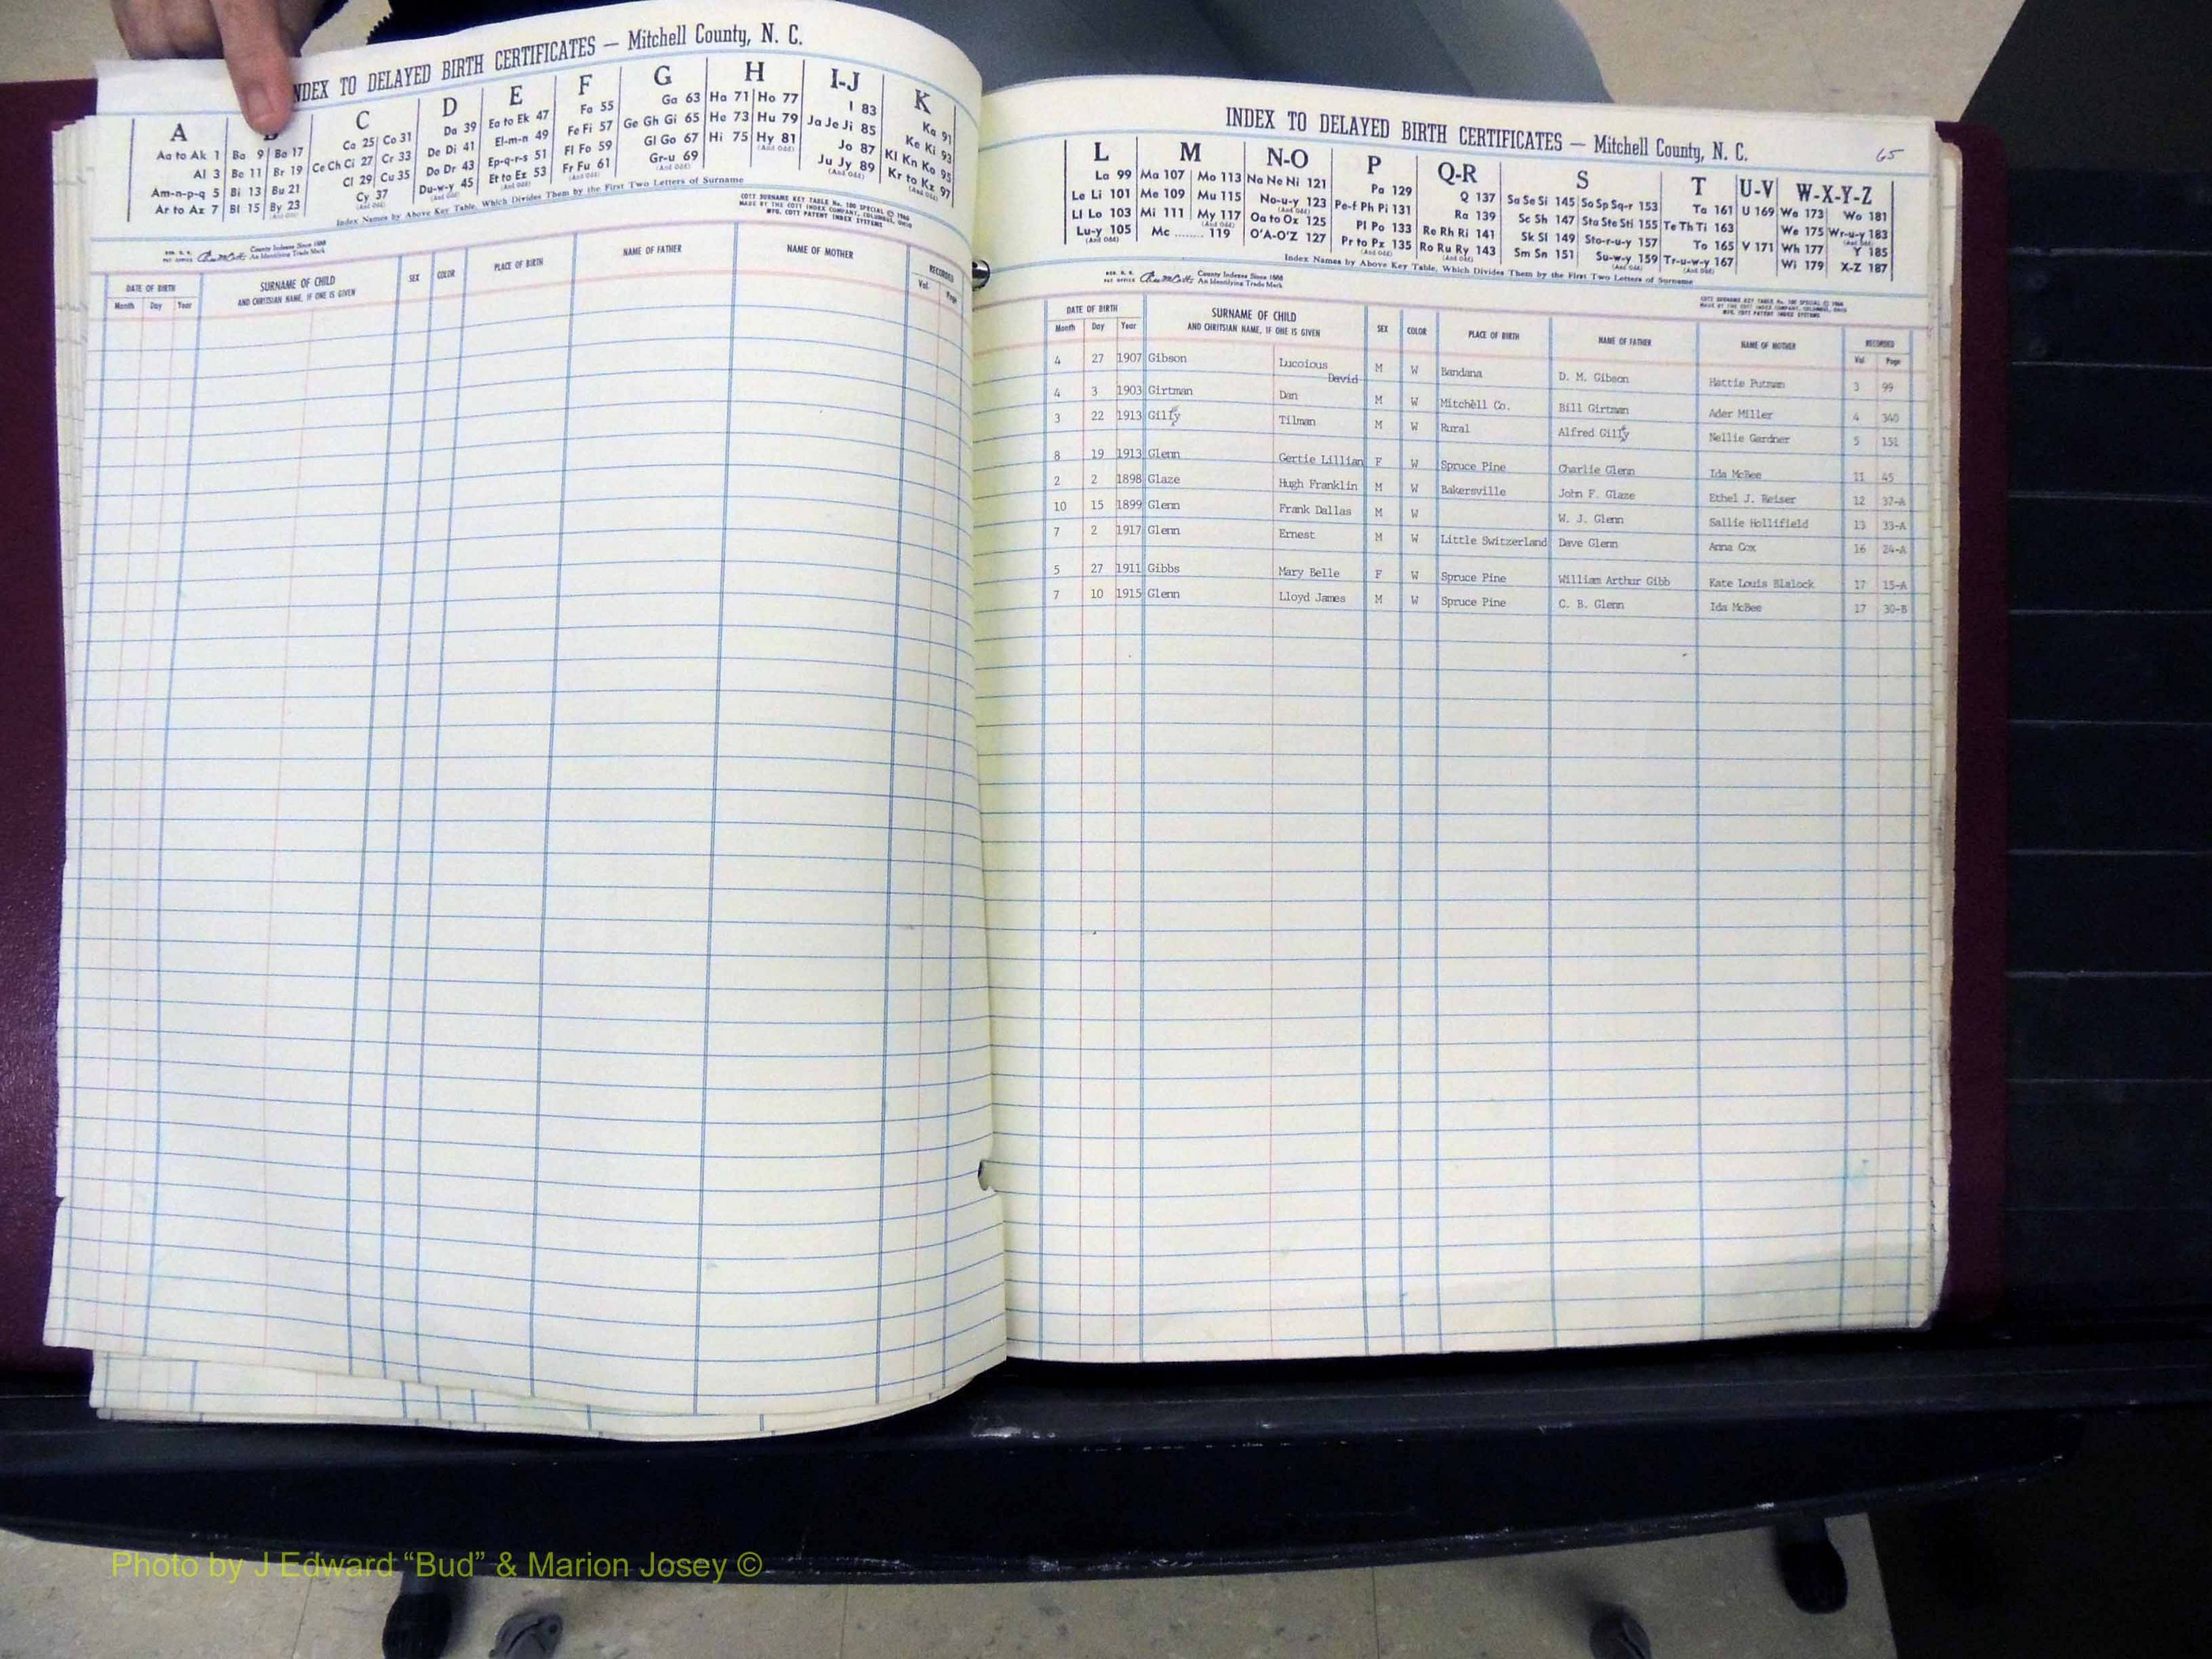 INDEX TO DELAYED BIRTH CERTIFICATES — Mitchell County, N. C.
A B C D E F G H I-J K
Aa to Ak 1 Ba 9 Bo 17 Ca 25 Co 31 Da 39 Ea to Ek 47 Fa 55 Ga 63 Ha 71 Ho 77 I 83 Ka 91
Al 3 Be 11 Br 19 Ce Ch Ci 27 Cr 33 De Di 41 El-m-n 49 Fe Fi 57 Ge Gh Gi 65 He 73 Hu 79 Ja Je Ji 85 Ke Ki 93
Am-n-p-q 5 Bi 13 Bu 21 Cl 29 Cu 35 Do Dr 43 Ep-q-r-s 51 Fl Fo 59 Gl Go 67 Hi 75 Hy 81 Jo 87 Kl Kn Ko 95
Ar to Az 7 Bl 15 By 23 Cy 37 Du-w-y 45 Et to Ez 53 Fr Fu 61 Gr-u 69 (And Odd) Ju Jy 89 Kr to Kz 97
(And Odd) (And Odd) (And Odd) (And Odd) (And Odd) (And Odd) (And Odd) (And Odd)
Index Names by Above Key Table, Which Divides Them by the First Two Letters of Surname
COTT SURNAME KEY TABLE No. 180 SPECIAL ©
MADE BY THE COTT INDEX COMPANY, COLUMBUS, OHIO
MFG. COTT PATENT INDEX SYSTEMS
County Indexes Since 1888
An Identifying Trade Mark
DATE OF BIRTH SURNAME OF CHILD SEX COLOR PLACE OF BIRTH NAME OF FATHER NAME OF MOTHER RECORDED
Month Day Year AND CHRITSIAN NAME, IF ONE IS GIVEN Vol. Page
INDEX TO DELAYED BIRTH CERTIFICATES — Mitchell County, N. C.
65
L M N-O P Q-R S T U-V W-X-Y-Z
La 99 Ma 107 Mo 113 Na Ne Ni 121 Pa 129 Q 137 Sa Se Si 145 So Sp Sq-r 153 Ta 161 U 169 Wa 173 Wo 181
Le Li 101 Me 109 Mu 115 No-u-y 123 Pe-f Ph Pi 131 Ra 139 Sc Sh 147 Sta Ste Sti 155 Te Th Ti 163 We 175 Wr-u-y 183
Ll Lo 103 Mi 111 My 117 Oa to Ox 125 Pl Po 133 Re Rh Ri 141 Sk Sl 149 Sto-r-u-y 157 To 165 V 171 Wh 177 Y 185
Lu-y 105 Mc ........ 119 O'A-O'Z 127 Pr to Px 135 Ro Ru Ry 143 Sm Sn 151 Su-w-y 159 Tr-u-w-y 167 Wi 179 X-Z 187
Index Names by Above Key Table, Which Divides Them by the First Two Letters of Surname
County Indexes Since 1888
An Identifying Trade Mark
COTT SURNAME KEY TABLE No. 180 SPECIAL ©
MADE BY THE COTT INDEX COMPANY, COLUMBUS, OHIO
MFG. COTT PATENT INDEX SYSTEMS
DATE OF BIRTH SURNAME OF CHILD SEX COLOR PLACE OF BIRTH NAME OF FATHER NAME OF MOTHER RECORDED
Month Day Year AND CHRITSIAN NAME, IF ONE IS GIVEN Vol Page
4 27 1907 Gibson Lucoious David M W Bandana D. M. Gibson Hattie Putman 3 99
4 3 1903 Girtman Dan M W Mitchell Co. Bill Girtman Ader Miller 4 340
3 22 1913 Gilly Tilman M W Rural Alfred Gilly Nellie Gardner 5 151
8 19 1913 Glenn Gertie Lillian F W Spruce Pine Charlie Glenn Ida McBee 11 45
2 2 1898 Glaze Hugh Franklin M W Bakersville John F. Glaze Ethel J. Reiser 12 37-A
10 15 1899 Glenn Frank Dallas M W W. J. Glenn Sallie Hollifield 13 33-A
7 2 1917 Glenn Ernest M W Little Switzerland Dave Glenn Anna Cox 16 24-A
5 27 1911 Gibbs Mary Belle F W Spruce Pine William Arthur Gibb Kate Louis Blalock 17 15-A
7 10 1915 Glenn Lloyd James M W Spruce Pine C. B. Glenn Ida McBee 17 30-B
Photo by J Edward “Bud” & Marion Josey ©